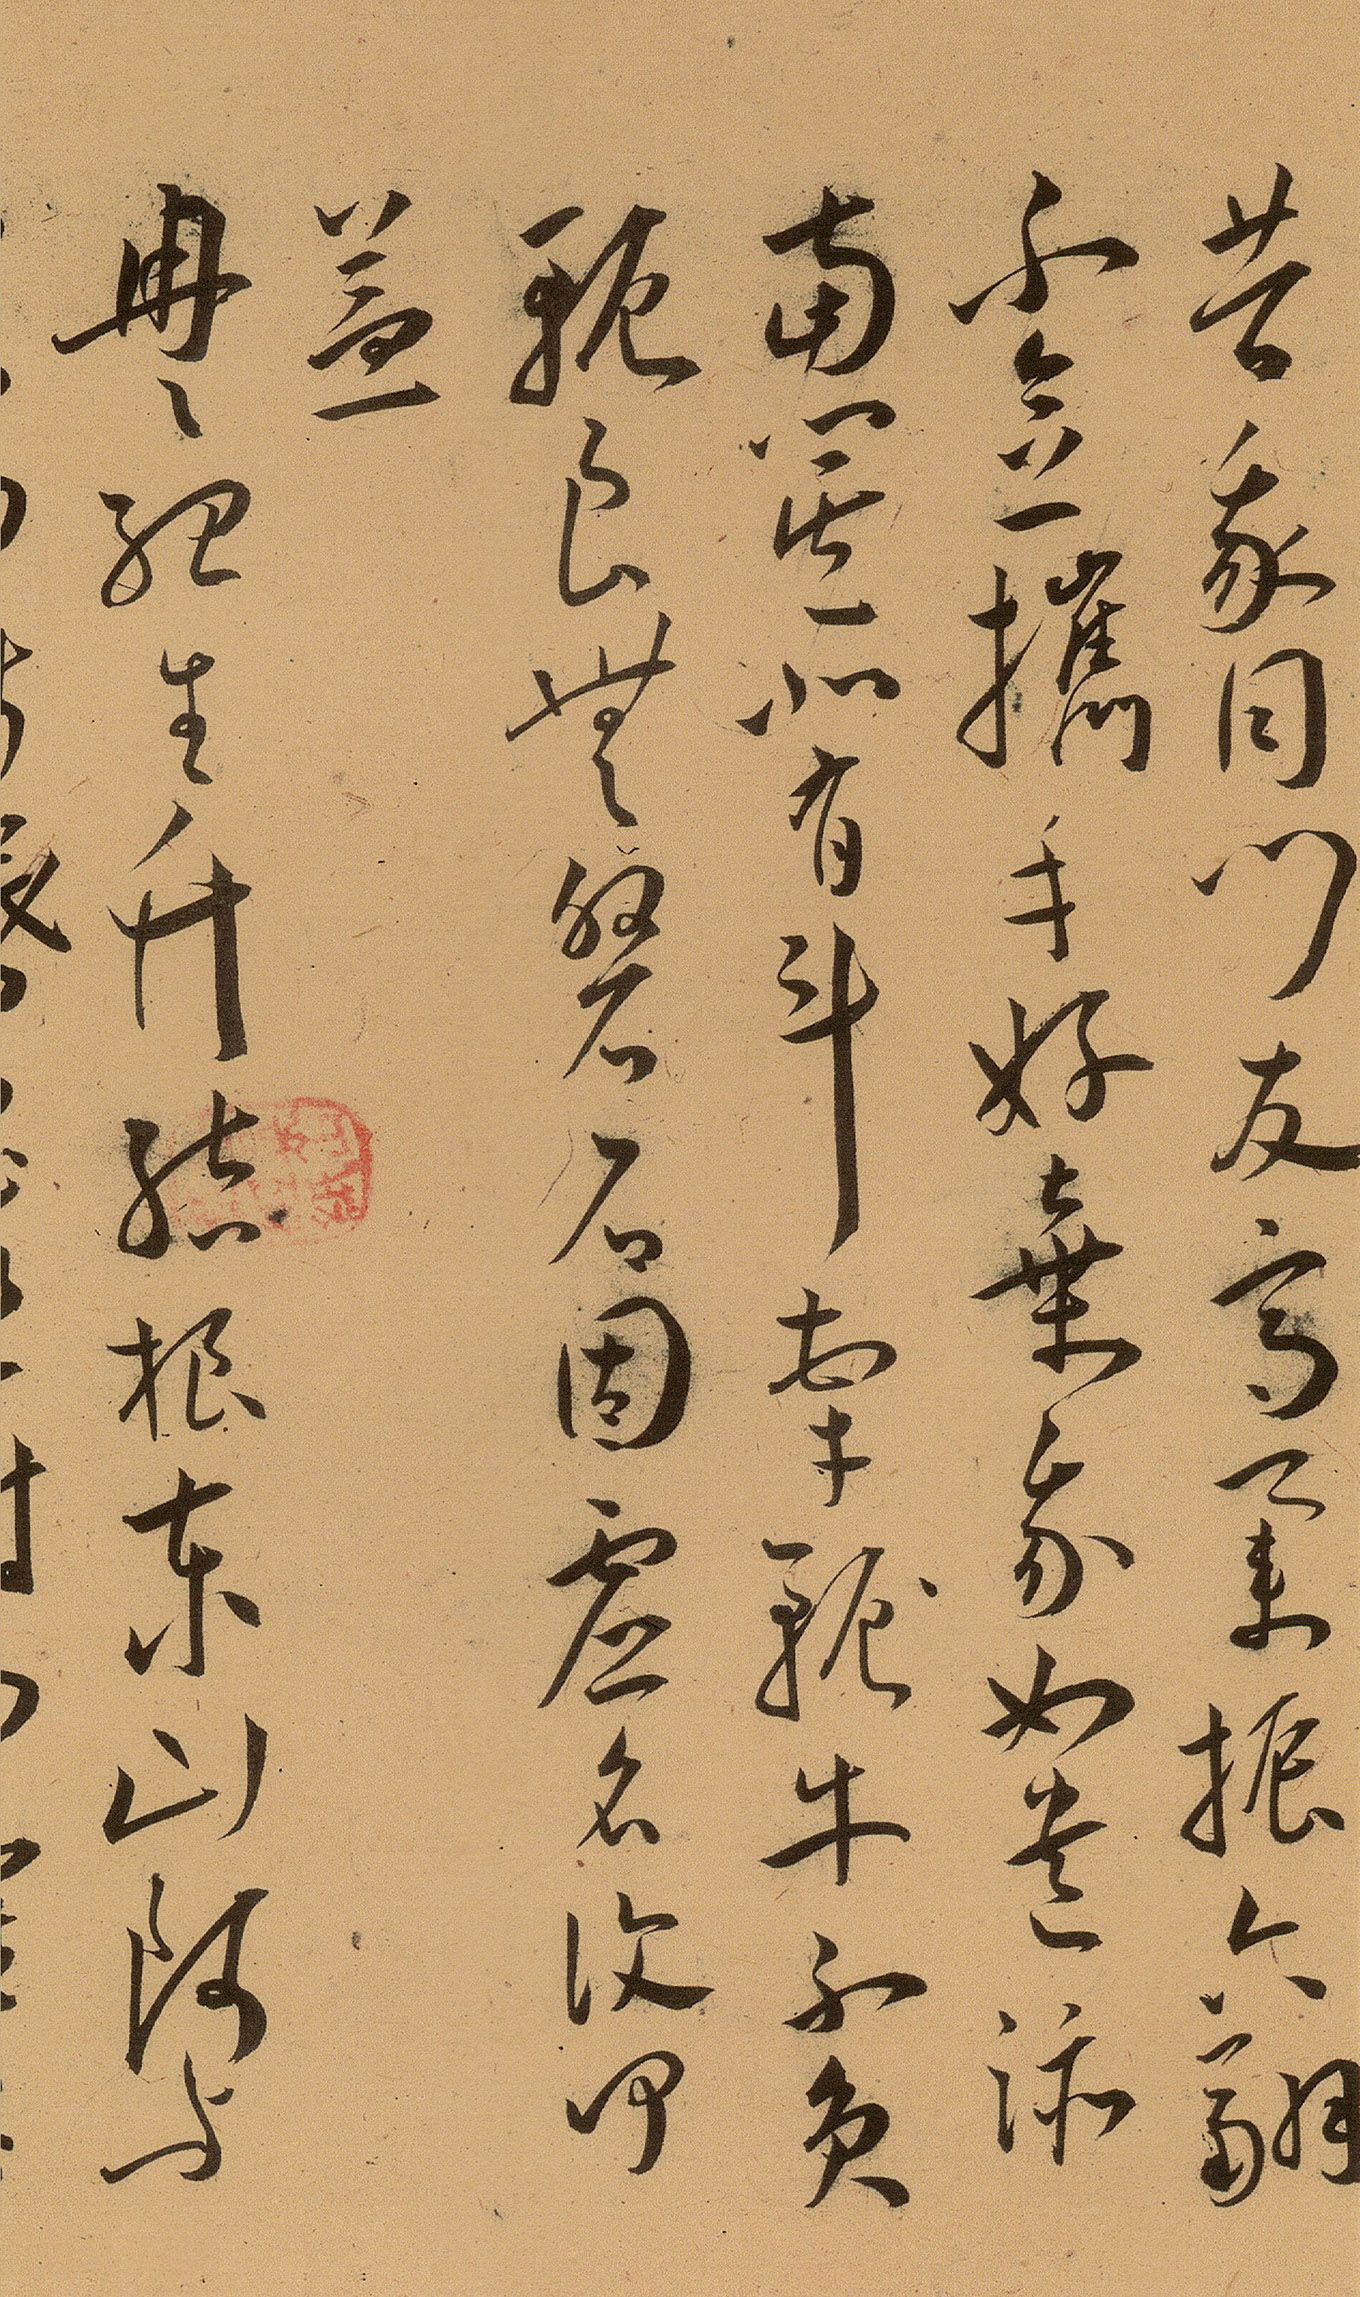 昔我同門友高舉振六翮
不念攜手好棄我如遺跡
南箕北有斗牽軛牛不負
軛良無磐石固虛名復何
益
冉〻孤生竹結根泰山阿與